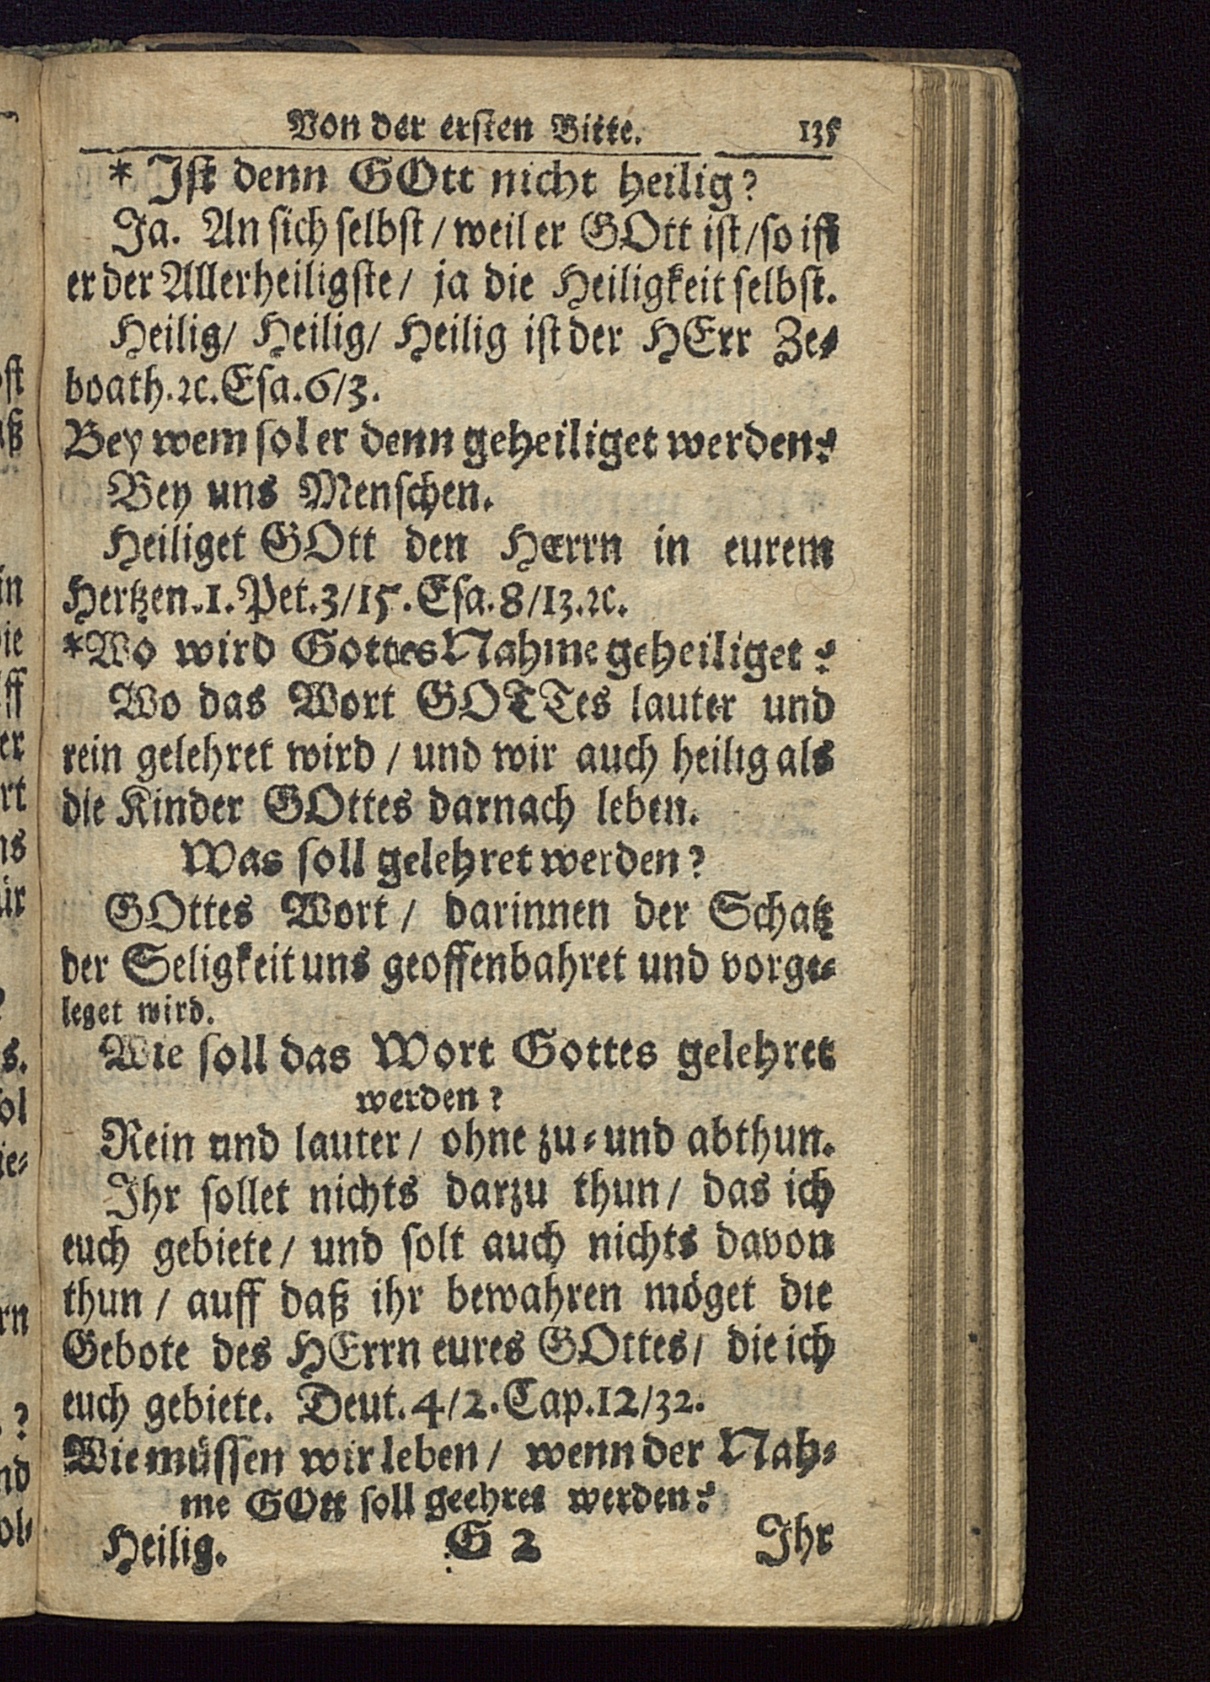 Von der ersten Bitte. 135
* Ist denn GOtt nicht heilig?
Ja. An sich selbst / weil er GOtt ist / so ist
er der Allerheiligste / ja die Heiligkeit selbst.
Heilig / Heilig / Heilig ist der HErr Ze⸗
boath. ꝛc. Esa. 6/3.
Bey wem sol er denn geheiliget werden?
Bey uns Menschen.
Heiliget GOtt den Herrn in eurem
Hertzen. 1. Pet. 3/15. Esa. 8/13. ꝛc.
* Wo wird Gottes Nahme geheiliget?
Wo das Wort GOTTes lauter und
rein gelehret wird / und wir auch heilig als
die Kinder GOttes darnach leben.
Was soll gelehret werden?
GOttes Wort / darinnen der Schatz
der Seligkeit uns geoffenbahret und vorge⸗
leget wird.
Wie soll das Wort Gottes gelehret
werden?
Rein und lauter / ohne zu⸗ und abthun.
Ihr sollet nichts darzu thun / das ich
euch gebiete / und solt auch nichts davon
thun / auff daß ihr bewahren möget die
Gebote des HErrn eures GOttes / die ich
euch gebiete. Deut. 4/2. Cap. 12/32.
Wie müssen wir leben / wenn der Nah⸗
me GOtt soll geehret werden?
Heilig. G 2 Ihr